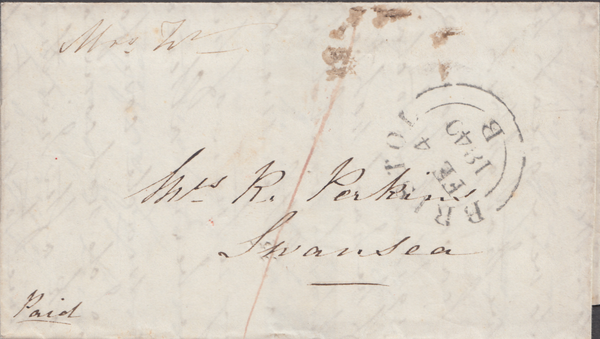 Mrs
BRISTOL
FE 4
1840
B
Mrs R. Perkins
Swansea
Paid